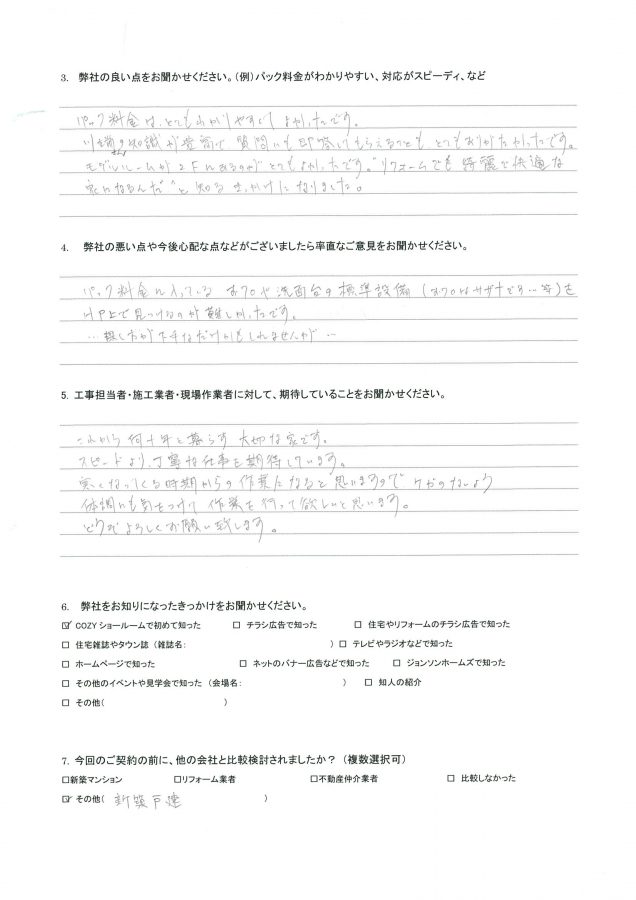 3. 弊社の良い点をお聞かせください。（例）パック料金がわかりやすい、対応がスピーディ、など
パック料金は、とてもわかりやすくてよかったです。
知識が豊富で質問にも即答してもらえることも、とてもありがたかったです。
モデルルームが2Fにあるのがとてもよかったです。"リフォームでも綺麗で快適な
家になるんだ"と知るきっかけになりました。
4. 弊社の悪い点や今後心配な点などがございましたら率直なご意見をお聞かせください。
パック料金に入っている お フロや洗面台の標準設備（おフロはサザナです…等）を
HP上で見つけるのが難しかったです。
…探し方が下手なだけかもしれませんが…
5. 工事担当者・施工業者・現場作業者に対して、期待していることをお聞かせください。
これから何十年と暮らす大切な家です。
スピードより、丁寧な仕事を期待しています。
寒くなってくる時期からの作業になると思いますので ケガのないよう
体調にも気をつけて作業を行って欲しいと思います。
どうぞよろしくお願い致します。
6. 弊社をお知りになったきっかけをお聞かせください。
☑ COZYショールームで初めて知った □ チラシ広告で知った □ 住宅やリフォームのチラシ広告で知った
□ 住宅雑誌やタウン誌（雑誌名： ）□ テレビやラジオなどで知った
□ ホームページで知った □ ネットのバナー広告などで知った □ ジョンソンホームズで知った
□ その他のイベントや見学会で知った（会場名： ） □ 知人の紹介
□ その他（ ）
7. 今回のご契約の前に、他の会社と比較検討されましたか？（複数選択可）
□新築マンション □リフォーム業者 □不動産仲介業者 □ 比較しなかった
☑ その他（ 新築戸建 ）